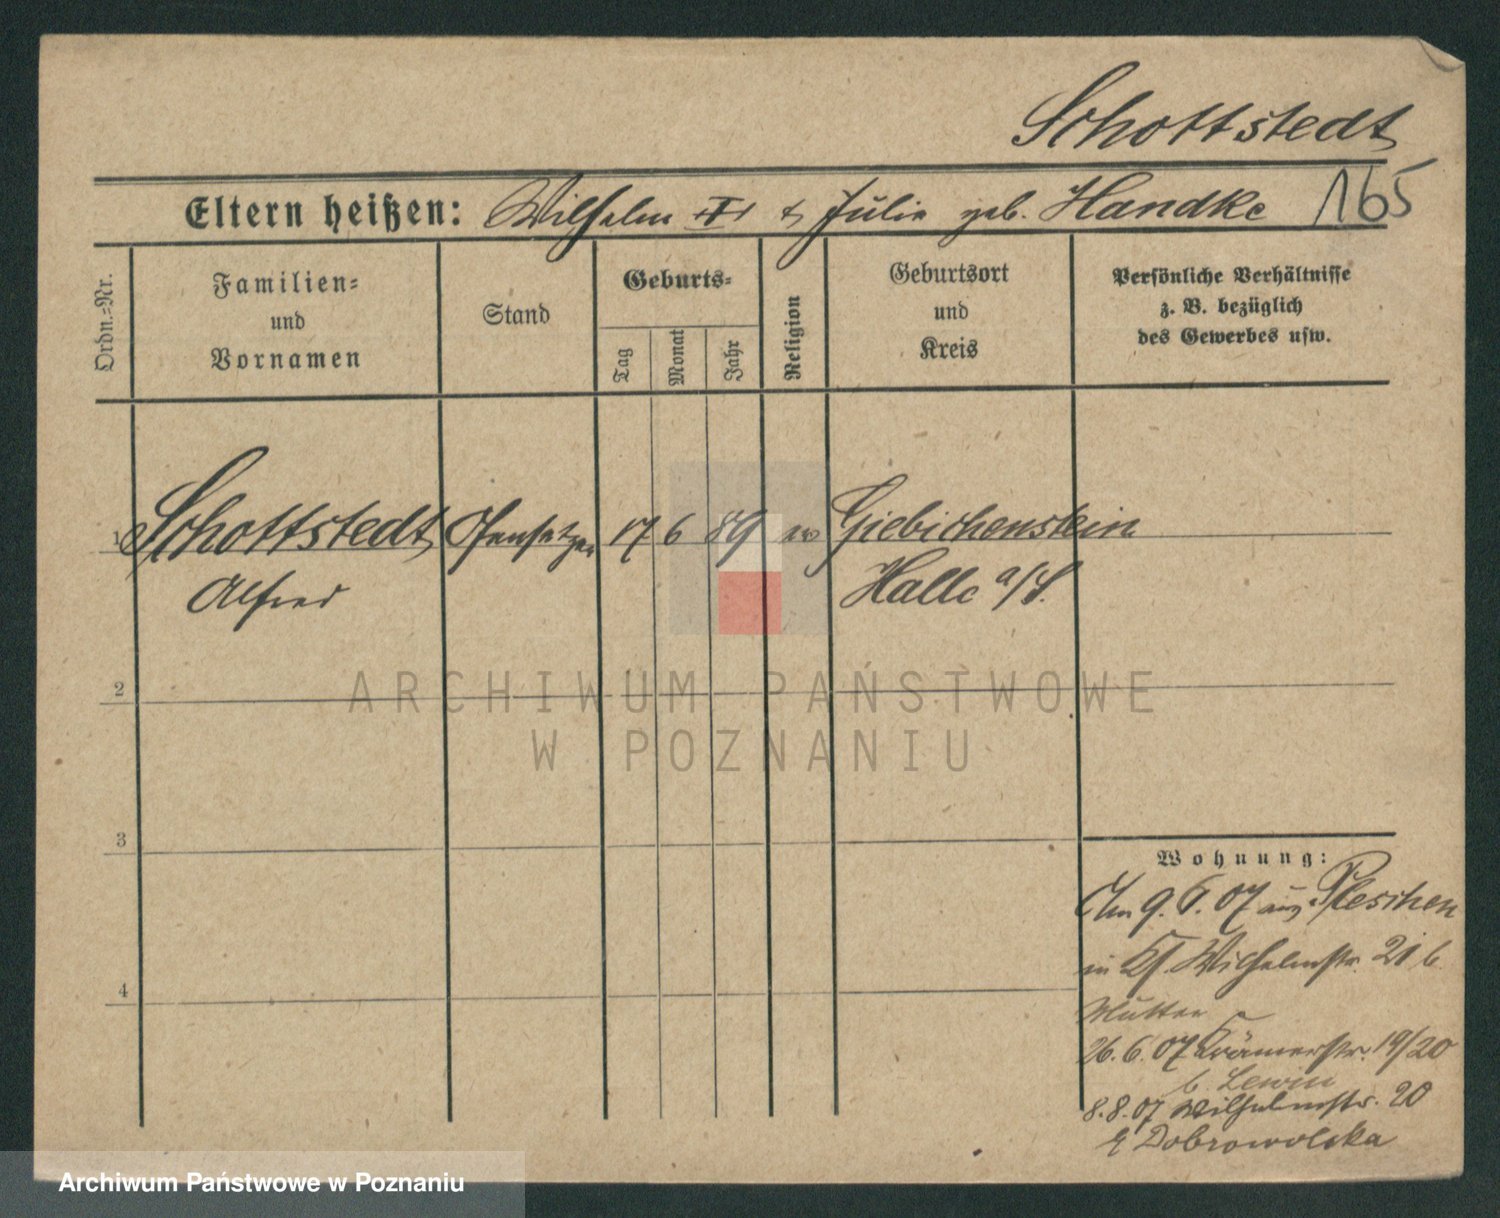 Schottstedt
165
Eltern heißen: Wilhelm III & Julie geb. Handke
Ordn.=Nr.
Familien=
und
Vornamen
Stand
Geburts=
Tag
Monat
Jahr
Religion
Geburtsort
und
Kreis
Persönliche Verhältnisse
z. B. bezüglich
des Gewerbes usw.
1 Schottstedt Ofensetzer 17 6 89 ev Giebichenstein
Alfred Halle a/S.
2
3
4
Wohnung:
Am 9.6.07 aus Pleschen
in Wilhelmstr. 21 b.
Mutter
26.6.07 Krämerstr. 19/20
b. Lewin
8.8.07 Wilhelmstr. 20
Dobrowolska
ARCHIWUM PAŃSTWOWE
W POZNANIU
Archiwum Państwowe w Poznaniu